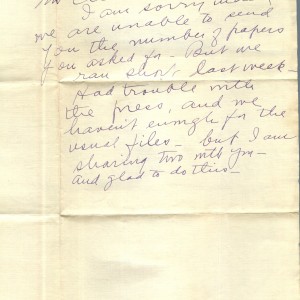 I am sorry
we are unable to send
you the number of papers
you asked for - But we
ran short last week -
Had trouble with
the press, and we
haven't enough for the
usual files - but I am
sharing two with you -
and glad to do this -